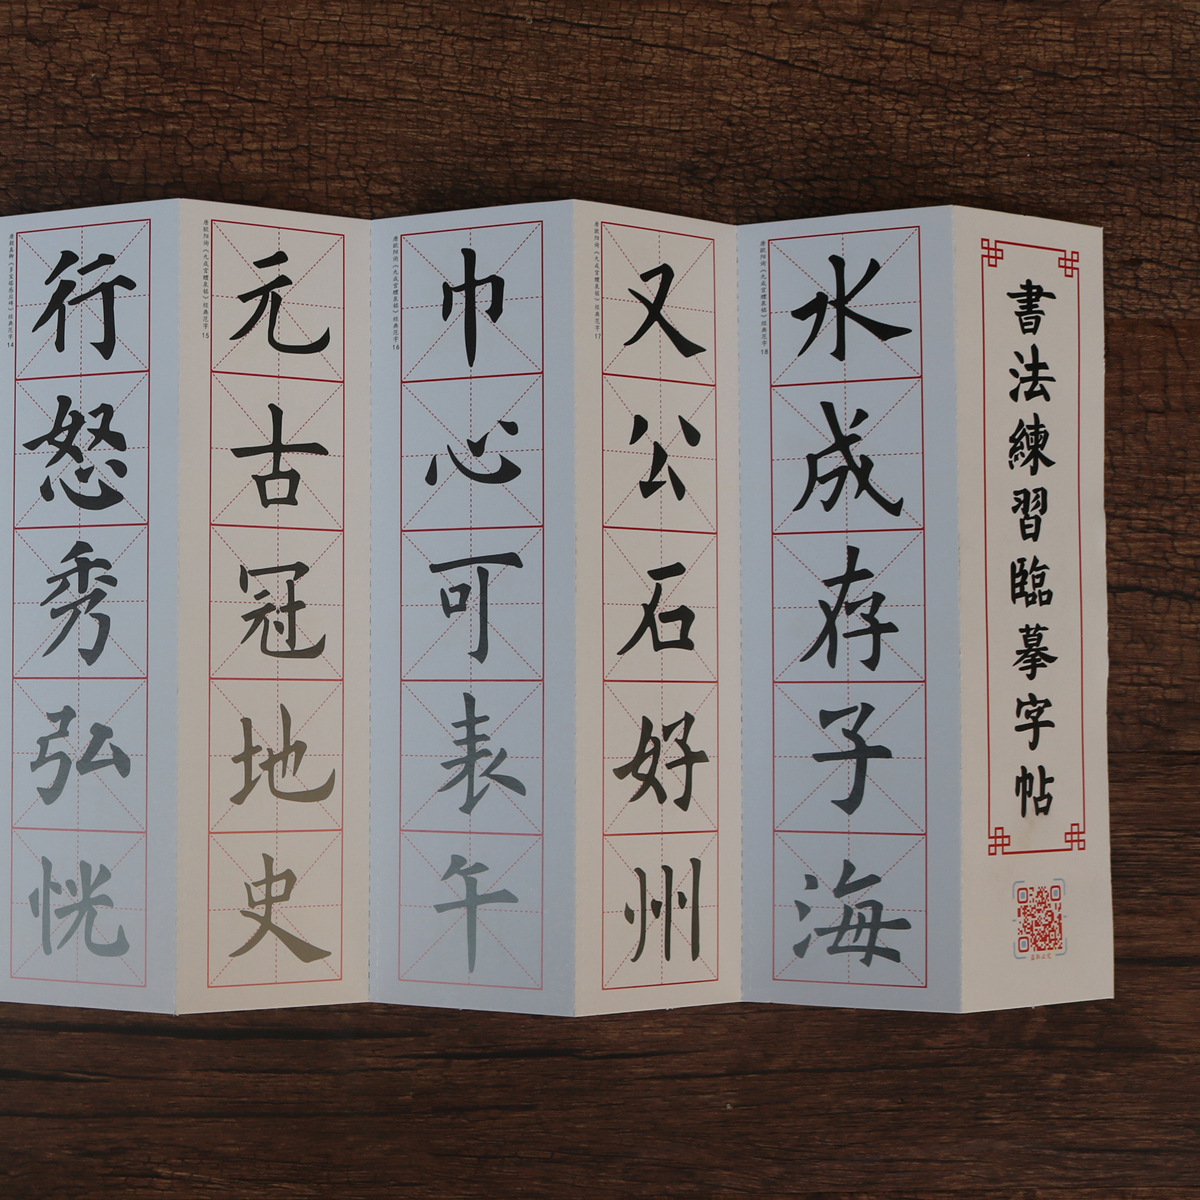 書法練習臨摹字帖
水成存子海
唐歐陽詢《九成宮醴泉銘》經典范字 18
又公石好州
唐歐陽詢《九成宮醴泉銘》經典范字 17
巾心可表午
唐歐陽詢《九成宮醴泉銘》經典范字 16
元古冠地史
唐歐陽詢《九成宮醴泉銘》經典范字 15
行怒秀弘恍
唐顏真卿《多寶塔感應碑》經典范字 14